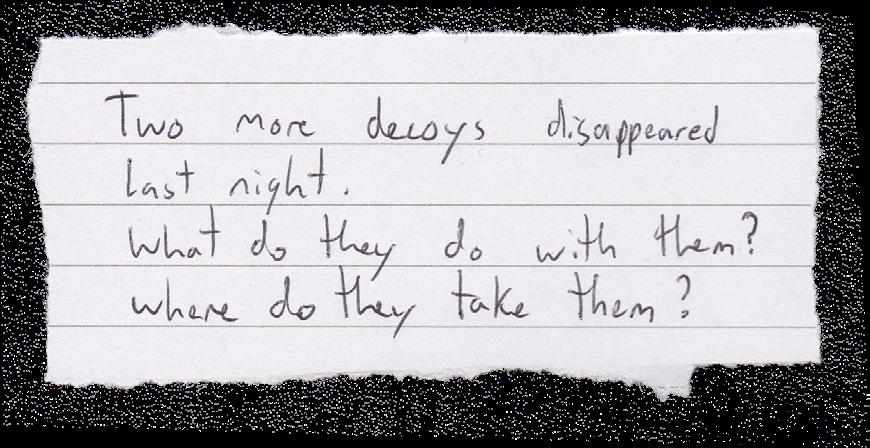 Two more decoys disappeared
last night.
What do they do with them?
where do they take them?